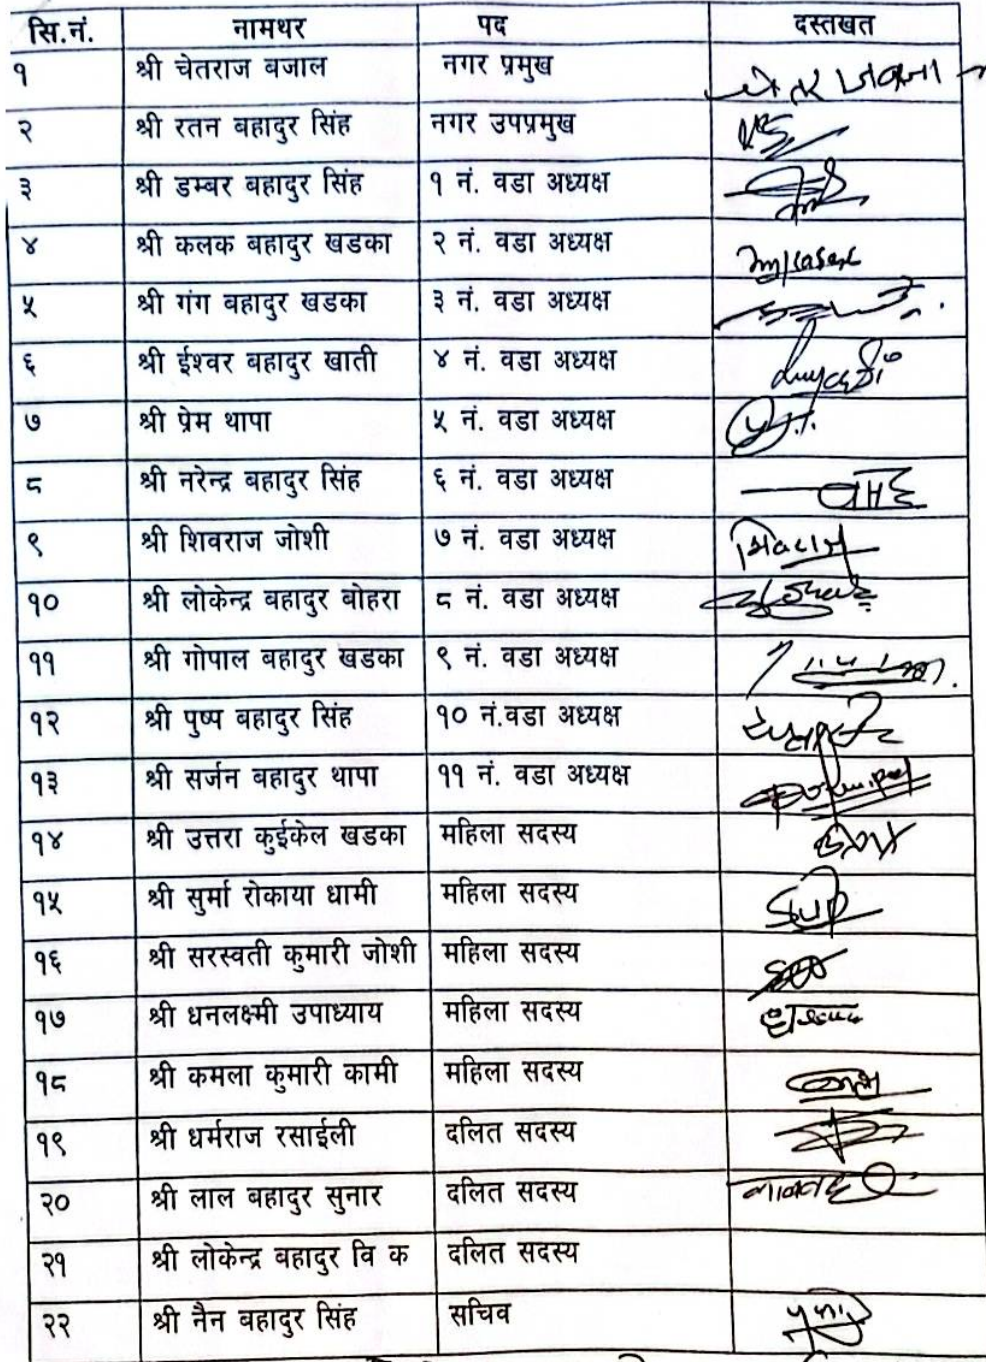 सि.नं. नामथर पद दस्तखत
१ श्री चेतराज बजाल नगर प्रमुख
२ श्री रतन बहादुर सिंह नगर उपप्रमुख
३ श्री डम्बर बहादुर सिंह १ नं. वडा अध्यक्ष
४ श्री कलक बहादुर खडका २ नं. वडा अध्यक्ष
५ श्री गंग बहादुर खडका ३ नं. वडा अध्यक्ष
६ श्री ईश्वर बहादुर खाती ४ नं. वडा अध्यक्ष
७ श्री प्रेम थापा ५ नं. वडा अध्यक्ष
८ श्री नरेन्द्र बहादुर सिंह ६ नं. वडा अध्यक्ष
९ श्री शिवराज जोशी ७ नं. वडा अध्यक्ष शिवराज
१० श्री लोकेन्द्र बहादुर बोहरा ८ नं. वडा अध्यक्ष
११ श्री गोपाल बहादुर खडका ९ नं. वडा अध्यक्ष
१२ श्री पुष्प बहादुर सिंह १० नं.वडा अध्यक्ष
१३ श्री सर्जन बहादुर थापा ११ नं. वडा अध्यक्ष
१४ श्री उत्तरा कुईकेल खडका महिला सदस्य
१५ श्री सुर्मा रोकाया धामी महिला सदस्य
१६ श्री सरस्वती कुमारी जोशी महिला सदस्य
१७ श्री धनलक्ष्मी उपाध्याय महिला सदस्य
१८ श्री कमला कुमारी कामी महिला सदस्य
१९ श्री धर्मराज रसाईली दलित सदस्य
२० श्री लाल बहादुर सुनार दलित सदस्य
२१ श्री लोकेन्द्र बहादुर वि क दलित सदस्य
२२ श्री नैन बहादुर सिंह सचिव